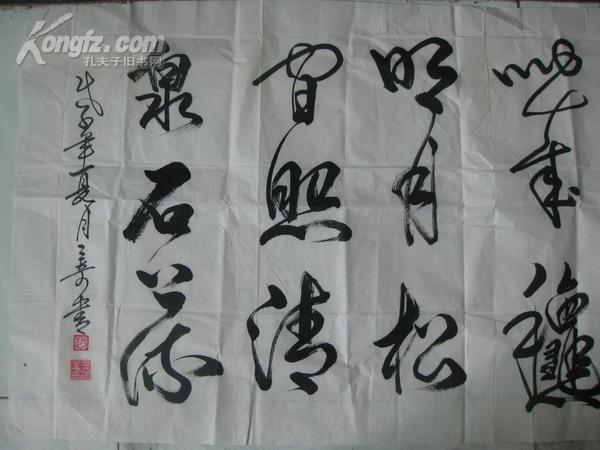 Kongfz.com
孔夫子旧书网
晚来穐
明月松
间照清
泉石上流
戊子年夏月
书